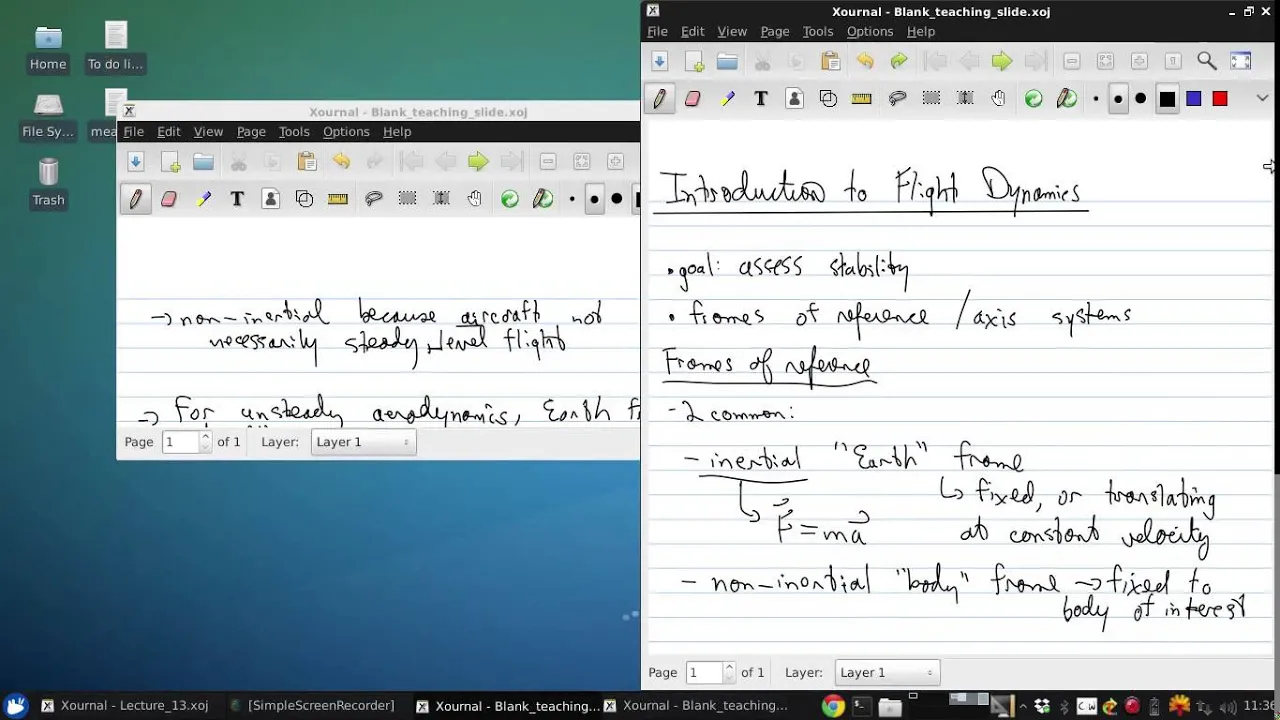 Home
To do li...
File Sy...
mea
Trash
Xournal - Blank_teaching_slide.xoj
File Edit View Page Tools Options Help
→ non-inertial because aircraft not
necessarily steady, level flight
→ For unsteady aerodynamics, Earth fr
Page 1 of 1 Layer: Layer 1
Xournal - Blank_teaching_slide.xoj
File Edit View Page Tools Options Help
Introduction to Flight Dynamics
• goal: assess stability
• frames of reference / axis systems
Frames of reference
- 2 common:
- inertial "Earth" frame
↳ fixed, or translating
at constant velocity
F = ma
- non-inertial "body" frame → fixed to
body of interest
Page 1 of 1 Layer: Layer 1
Xournal - Lecture_13.xoj
[SimpleScreenRecorder]
Xournal - Blank_teaching...
Xournal - Blank_teaching_slide...
11:36